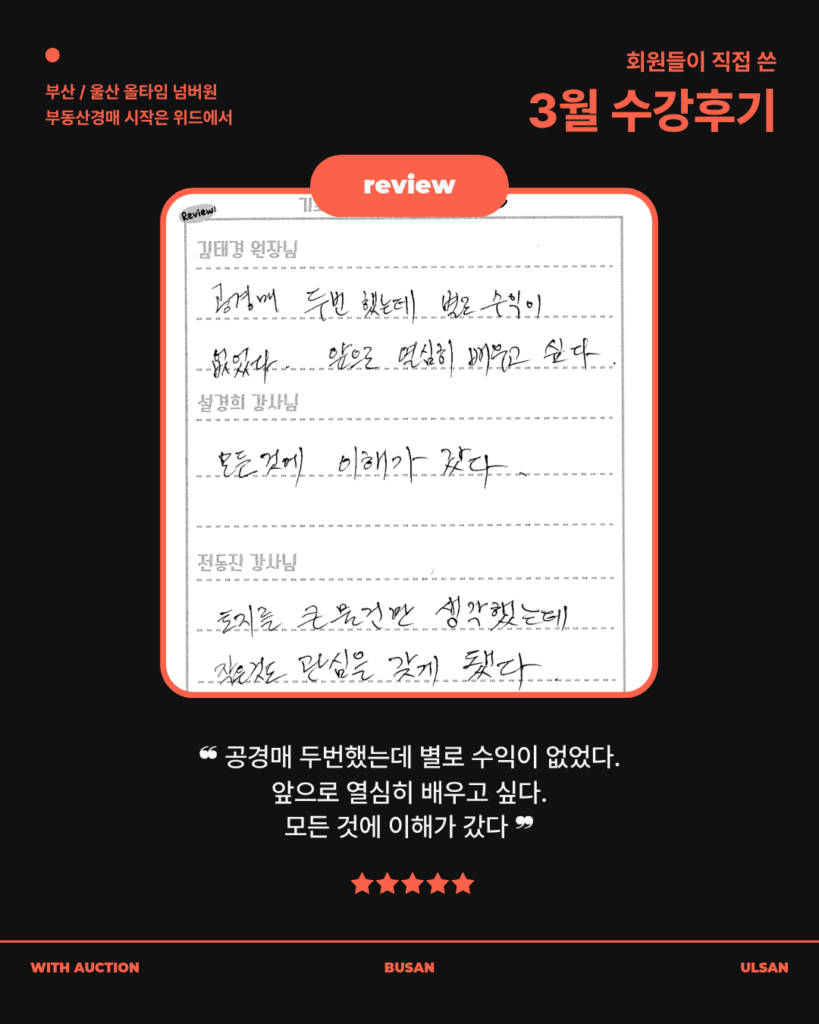 부산 / 울산 올타임 넘버원
부동산경매 시작은 위드에서
회원들이 직접 쓴
3월 수강후기
review
Review!
김태경 원장님
공경매 두번 했는데 별로 수익이
없었다. 앞으로 열심히 배우고 싶다.
설경희 강사님
모든것에 이해가 갔다.
전동진 강사님
토지를 큰 물건만 생각했는데
작은것도 관심을 갖게 됐다.
❝ 공경매 두번했는데 별로 수익이 없었다.
앞으로 열심히 배우고 싶다.
모든 것에 이해가 갔다 ❞
WITH AUCTION
BUSAN
ULSAN